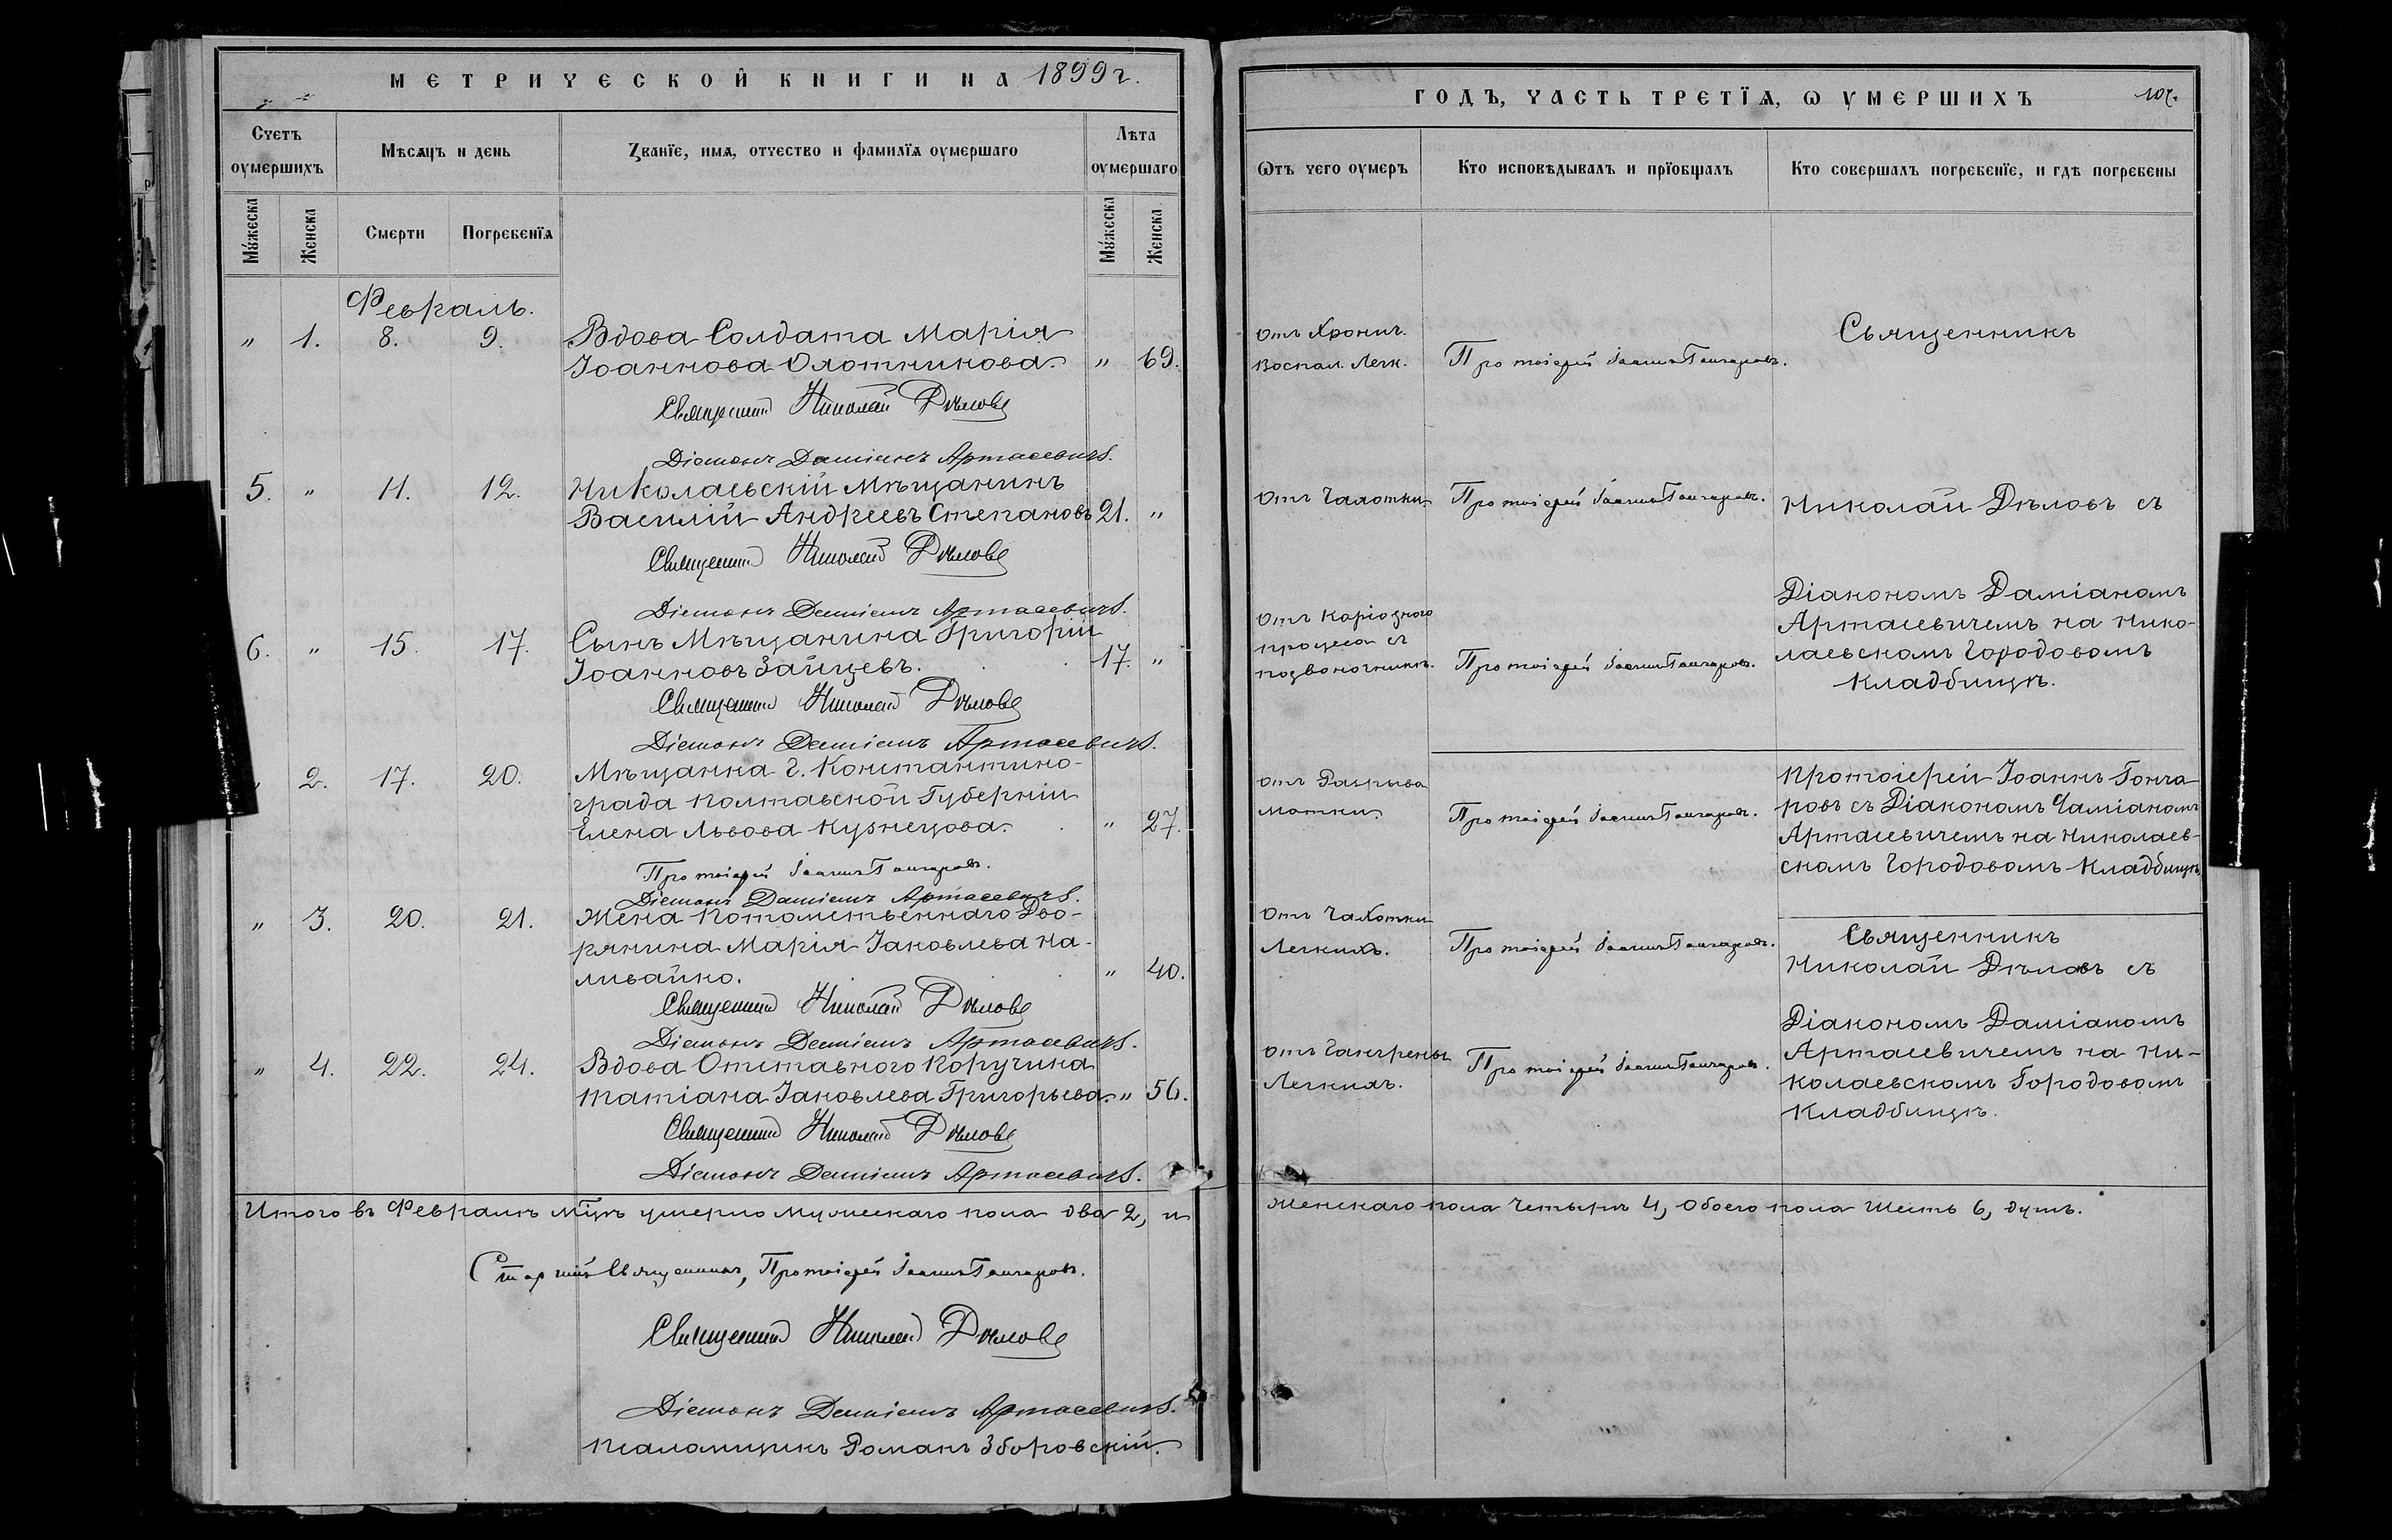 МЕТРИЧЕСКОЙ КНИГИ НА 1899 г.
Счетъ оумершихъ
Мѣсяцъ и день
Званїе, имя, отчество и фамилїя оумершаго
Лѣта оумершаго
Мꙋжеска
Женска
Смерти
Погребенїя
Мꙋжеска
Женска
Февраль.
" 1. 8. 9. Вдова Солдата Марія
Іоаннова Охотникова. " 69.
Священникъ Николай Дѣловъ
Діаконъ Даміанъ Артасевичъ.
5. " 11. 12. Николаевскій Мѣщанинъ
Василій Андреевъ Степановъ 21. "
Священникъ Николай Дѣловъ
Діаконъ Даміанъ Артасевичъ.
6. " 15. 17. Сынъ Мѣщанина Григорій
Іоанновъ Зайцевъ. 17. "
Священникъ Николай Дѣловъ
Діаконъ Даміанъ Артасевичъ.
" 2. 17. 20. Мѣщанка г. Константино-
града Полтавской Губерніи
Елена Львова Кузнецова. " 27.
Протоіерей Іоаннъ Гончаровъ.
Діаконъ Даміанъ Артасевичъ.
" 3. 20. 21. Жена Потомственнаго Дво-
рянина Марія Іаковлева На-
ливайко. " 40.
Священникъ Николай Дѣловъ
Діаконъ Даміанъ Артасевичъ.
" 4. 22. 24. Вдова Отставного Поручика
Татіана Іаковлева Григорьева. " 56.
Священникъ Николай Дѣловъ
Діаконъ Даміанъ Артасевичъ.
Итого въ Февралѣ м͠цѣ умерло мужескаго пола два 2, и
Старшій Священникъ, Протоіерей Іоаннъ Гончаровъ.
Священникъ Николай Дѣловъ
Діаконъ Даміанъ Артасевичъ.
Псаломщикъ Романъ Зборовскій.
ГОДЪ, ЧАСТЬ ТРЕТЇЯ, Ѡ УМЕРШИХЪ
Ѿтъ чего оумеръ
Кто исповѣдывалъ и прїобщалъ
Кто совершалъ погребенїе, и гдѣ погребены
отъ Хронич.
Воспал. Легк.
Протоіерей Іоаннъ Гончаровъ.
Священникъ
отъ Чахотки.
Протоіерей Іоаннъ Гончаровъ.
Николай Дѣловъ съ
отъ Каріознаго
процесса въ
позвоночникѣ.
Протоіерей Іоаннъ Гончаровъ.
Діакономъ Даміаномъ
Артасевичемъ на Нико-
лаевскомъ Городовомъ
Кладбищѣ.
отъ Разрыва
матки.
Протоіерей Іоаннъ Гончаровъ.
Протоіерей Іоаннъ Гонча-
ровъ съ Діакономъ Даміаномъ
Артасевичемъ на Николаев-
скомъ Городовомъ Кладбищѣ
отъ Чахотки
Легкихъ.
Протоіерей Іоаннъ Гончаровъ.
Священникъ
Николай Дѣловъ съ
отъ Гангрены
Легкихъ.
Протоіерей Іоаннъ Гончаровъ.
Діакономъ Даміаномъ
Артасевичемъ на Ни-
колаевскомъ Городовомъ
Кладбищѣ.
Женскаго пола Четыре 4, Обоего пола Шесть 6, душъ.